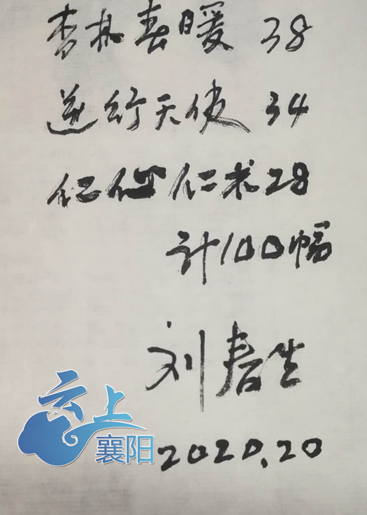 杏林春暖 38
逆行天使 34
仁心仁术 28
计100幅
刘春生
2020.20
云上
襄阳